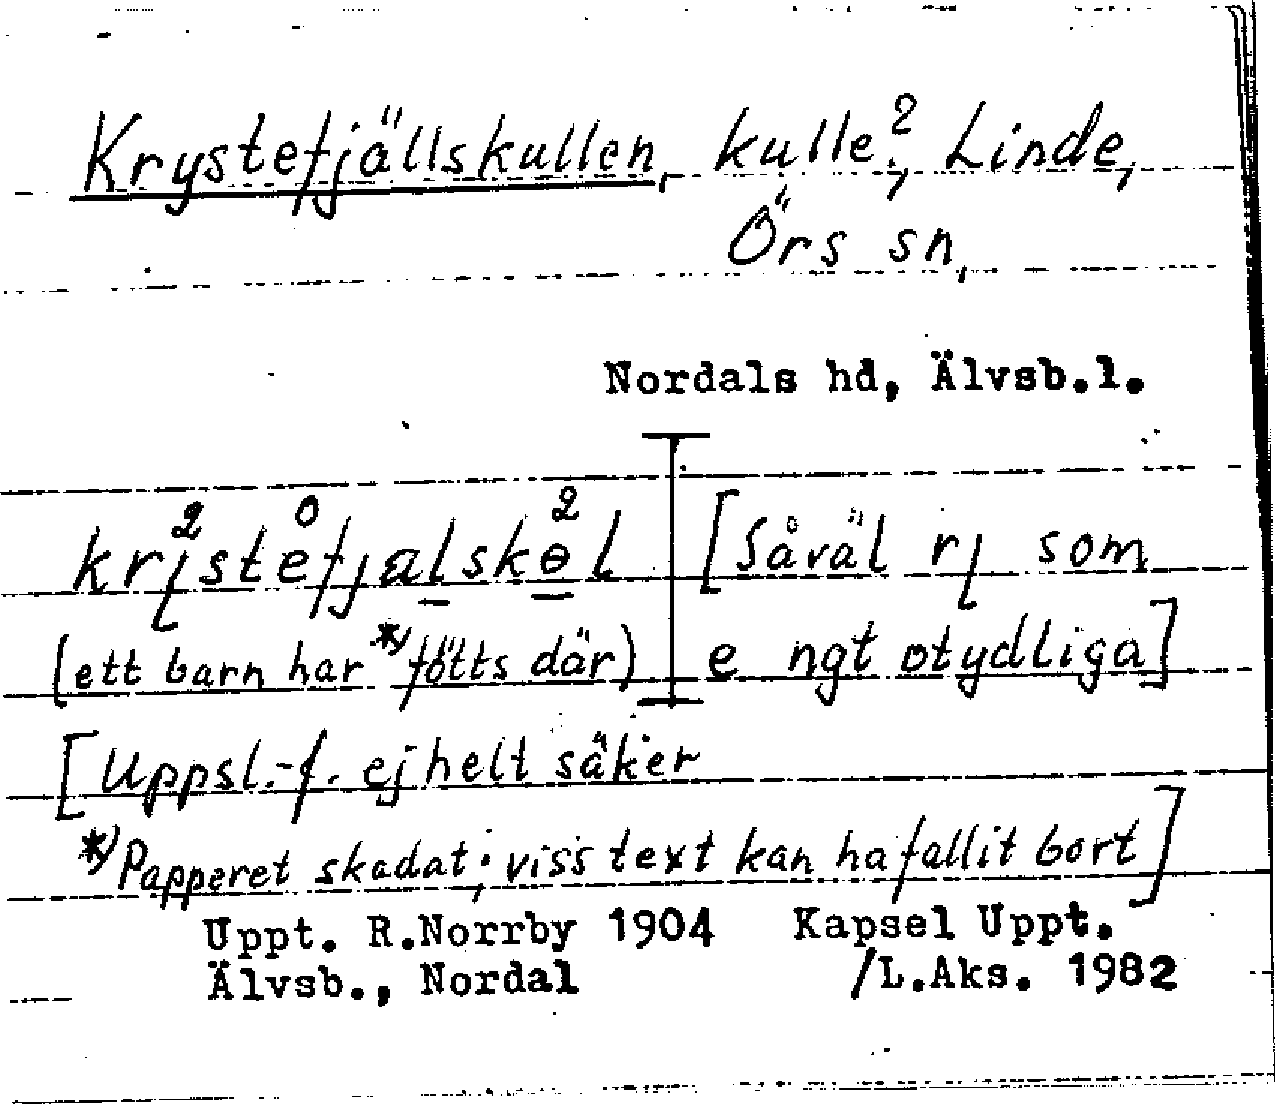 Krystefjällskullen, kulle?, Linde,
Örs sn,
Nordals hd, Älvsb.l.
krı̨²ste⁰fjalskɵ²l [Såväl rı̨ som
(ett barn har *) fötts där) e ngt otydliga]
[Uppsl.-f. ej helt säker
*) Papperet skadat; viss text kan ha fallit bort]
Uppt. R.Norrby 1904 Kapsel Uppt.
Älvsb., Nordal /L.Aks. 1982